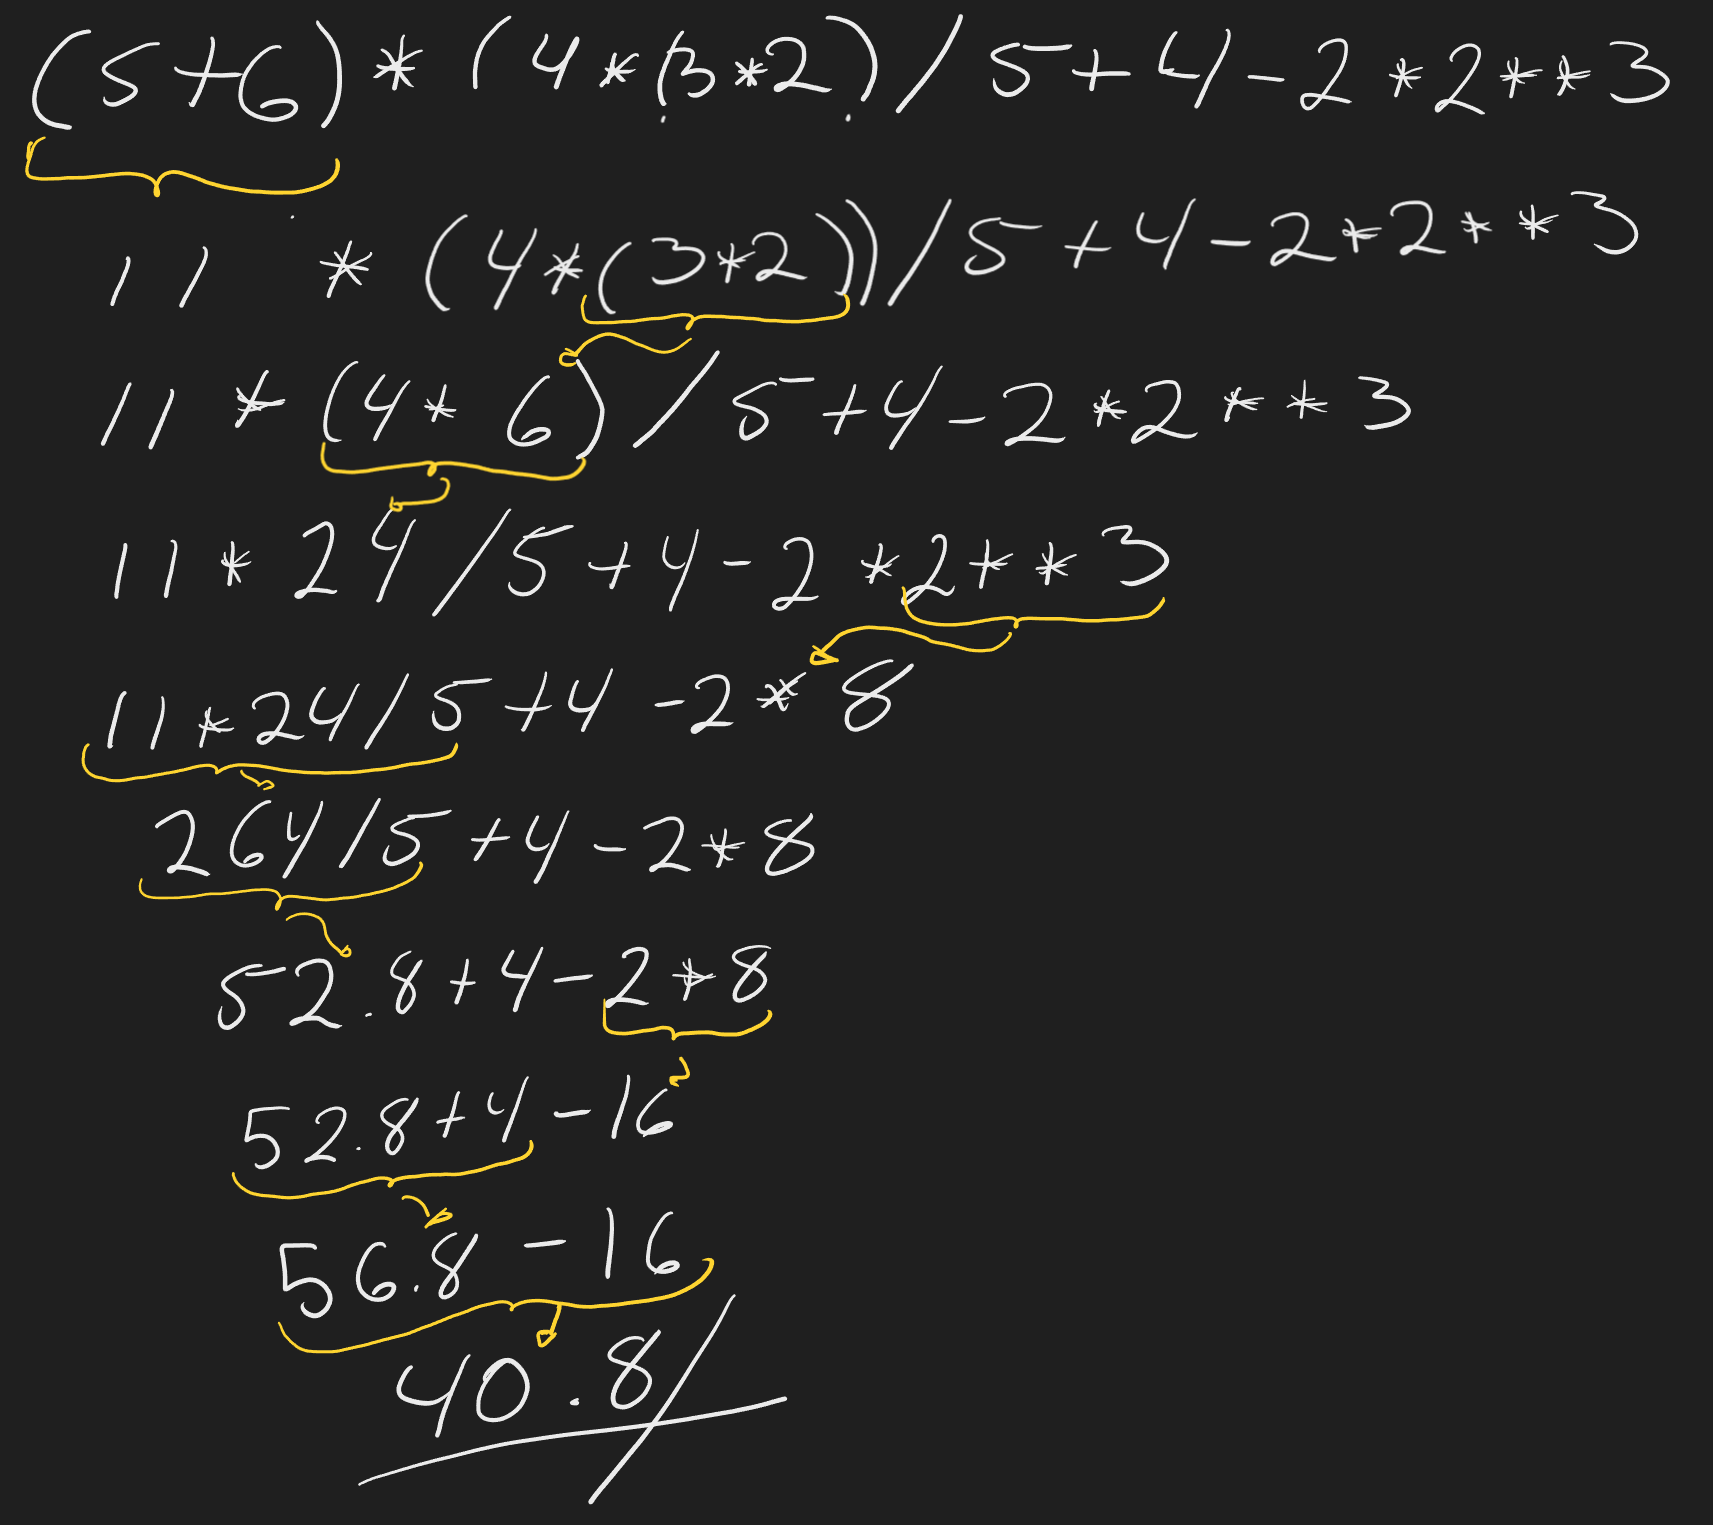 (5+6)*(4*(3*2)/5+4-2*2**3
11*(4*(3*2))/5+4-2*2**3
11*(4*6)/5+4-2*2**3
11*24/5+4-2*2**3
11*24/5+4-2*8
264/5+4-2*8
52.8+4-2*8
52.8+4-16
56.8-16
40.8/